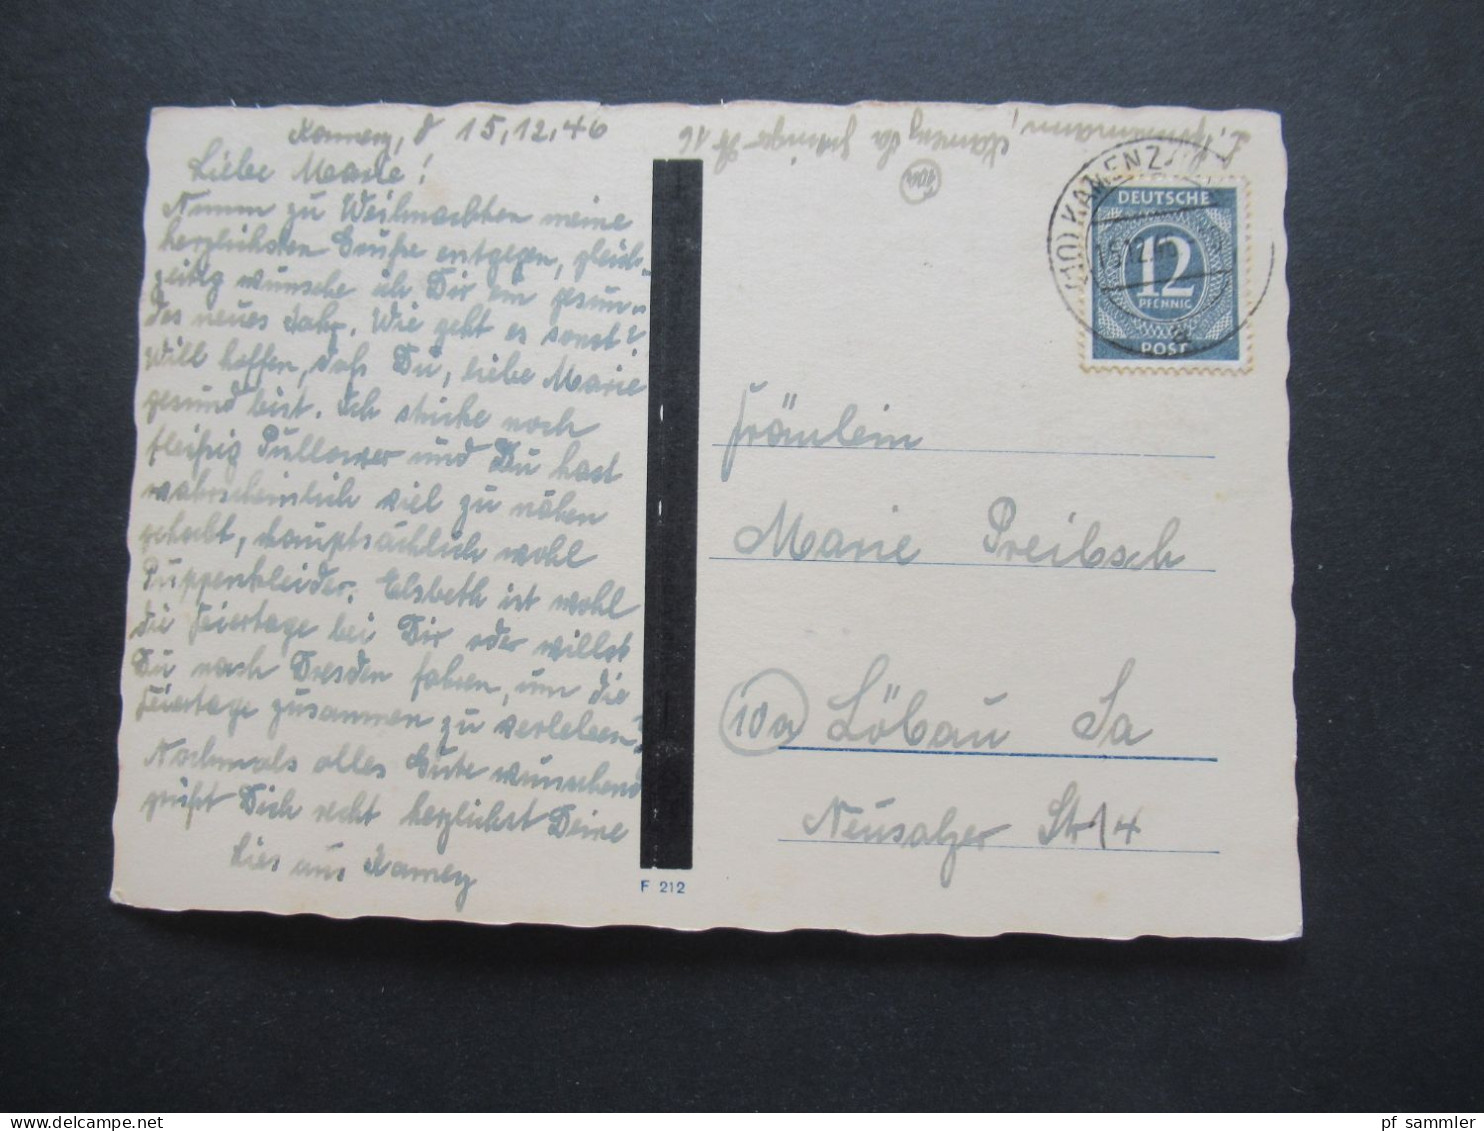 Kamenz, d 15.12.46
Liebe Marie!
Nimm zu Weihnachten meine
herzlichsten Grüße entgegen, gleich-
zeitig wünsche ich Dir ein gesun-
des neues Jahr. Wie geht es sonst?
Will hoffen, daß Du, liebe Marie
gesund bist. Ich stricke noch
fleißig Pullower und Du hast
wahrscheinlich viel zu nähen
gehabt, hauptsächlich wohl
Puppenkleider. Elsbeth ist wohl
die Feiertage bei Dir oder willst
Du nach Dresden fahren, um die
Feiertage zusammen zu verleben?
Nochmals alles Gute wünschend
grüßt Dich recht herzlichst Deine
Lies aus Kamenz
F 212
Kamenz Sa
16
10a
(10) KAMENZ
15.12.46
a
DEUTSCHE
12
PFENNIG
POST
Fräulein
Marie Preibsch
10a Löbau Sa
Neusalzer Str 4
pf_sammler
www.delcampe.net